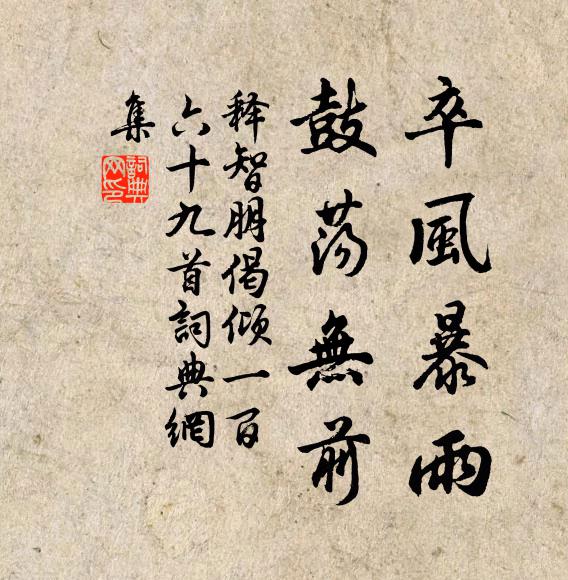 卒風暴雨
鼓荡無前
释智朋偈倾一百
六十九首詞典網
集
詞典
网印